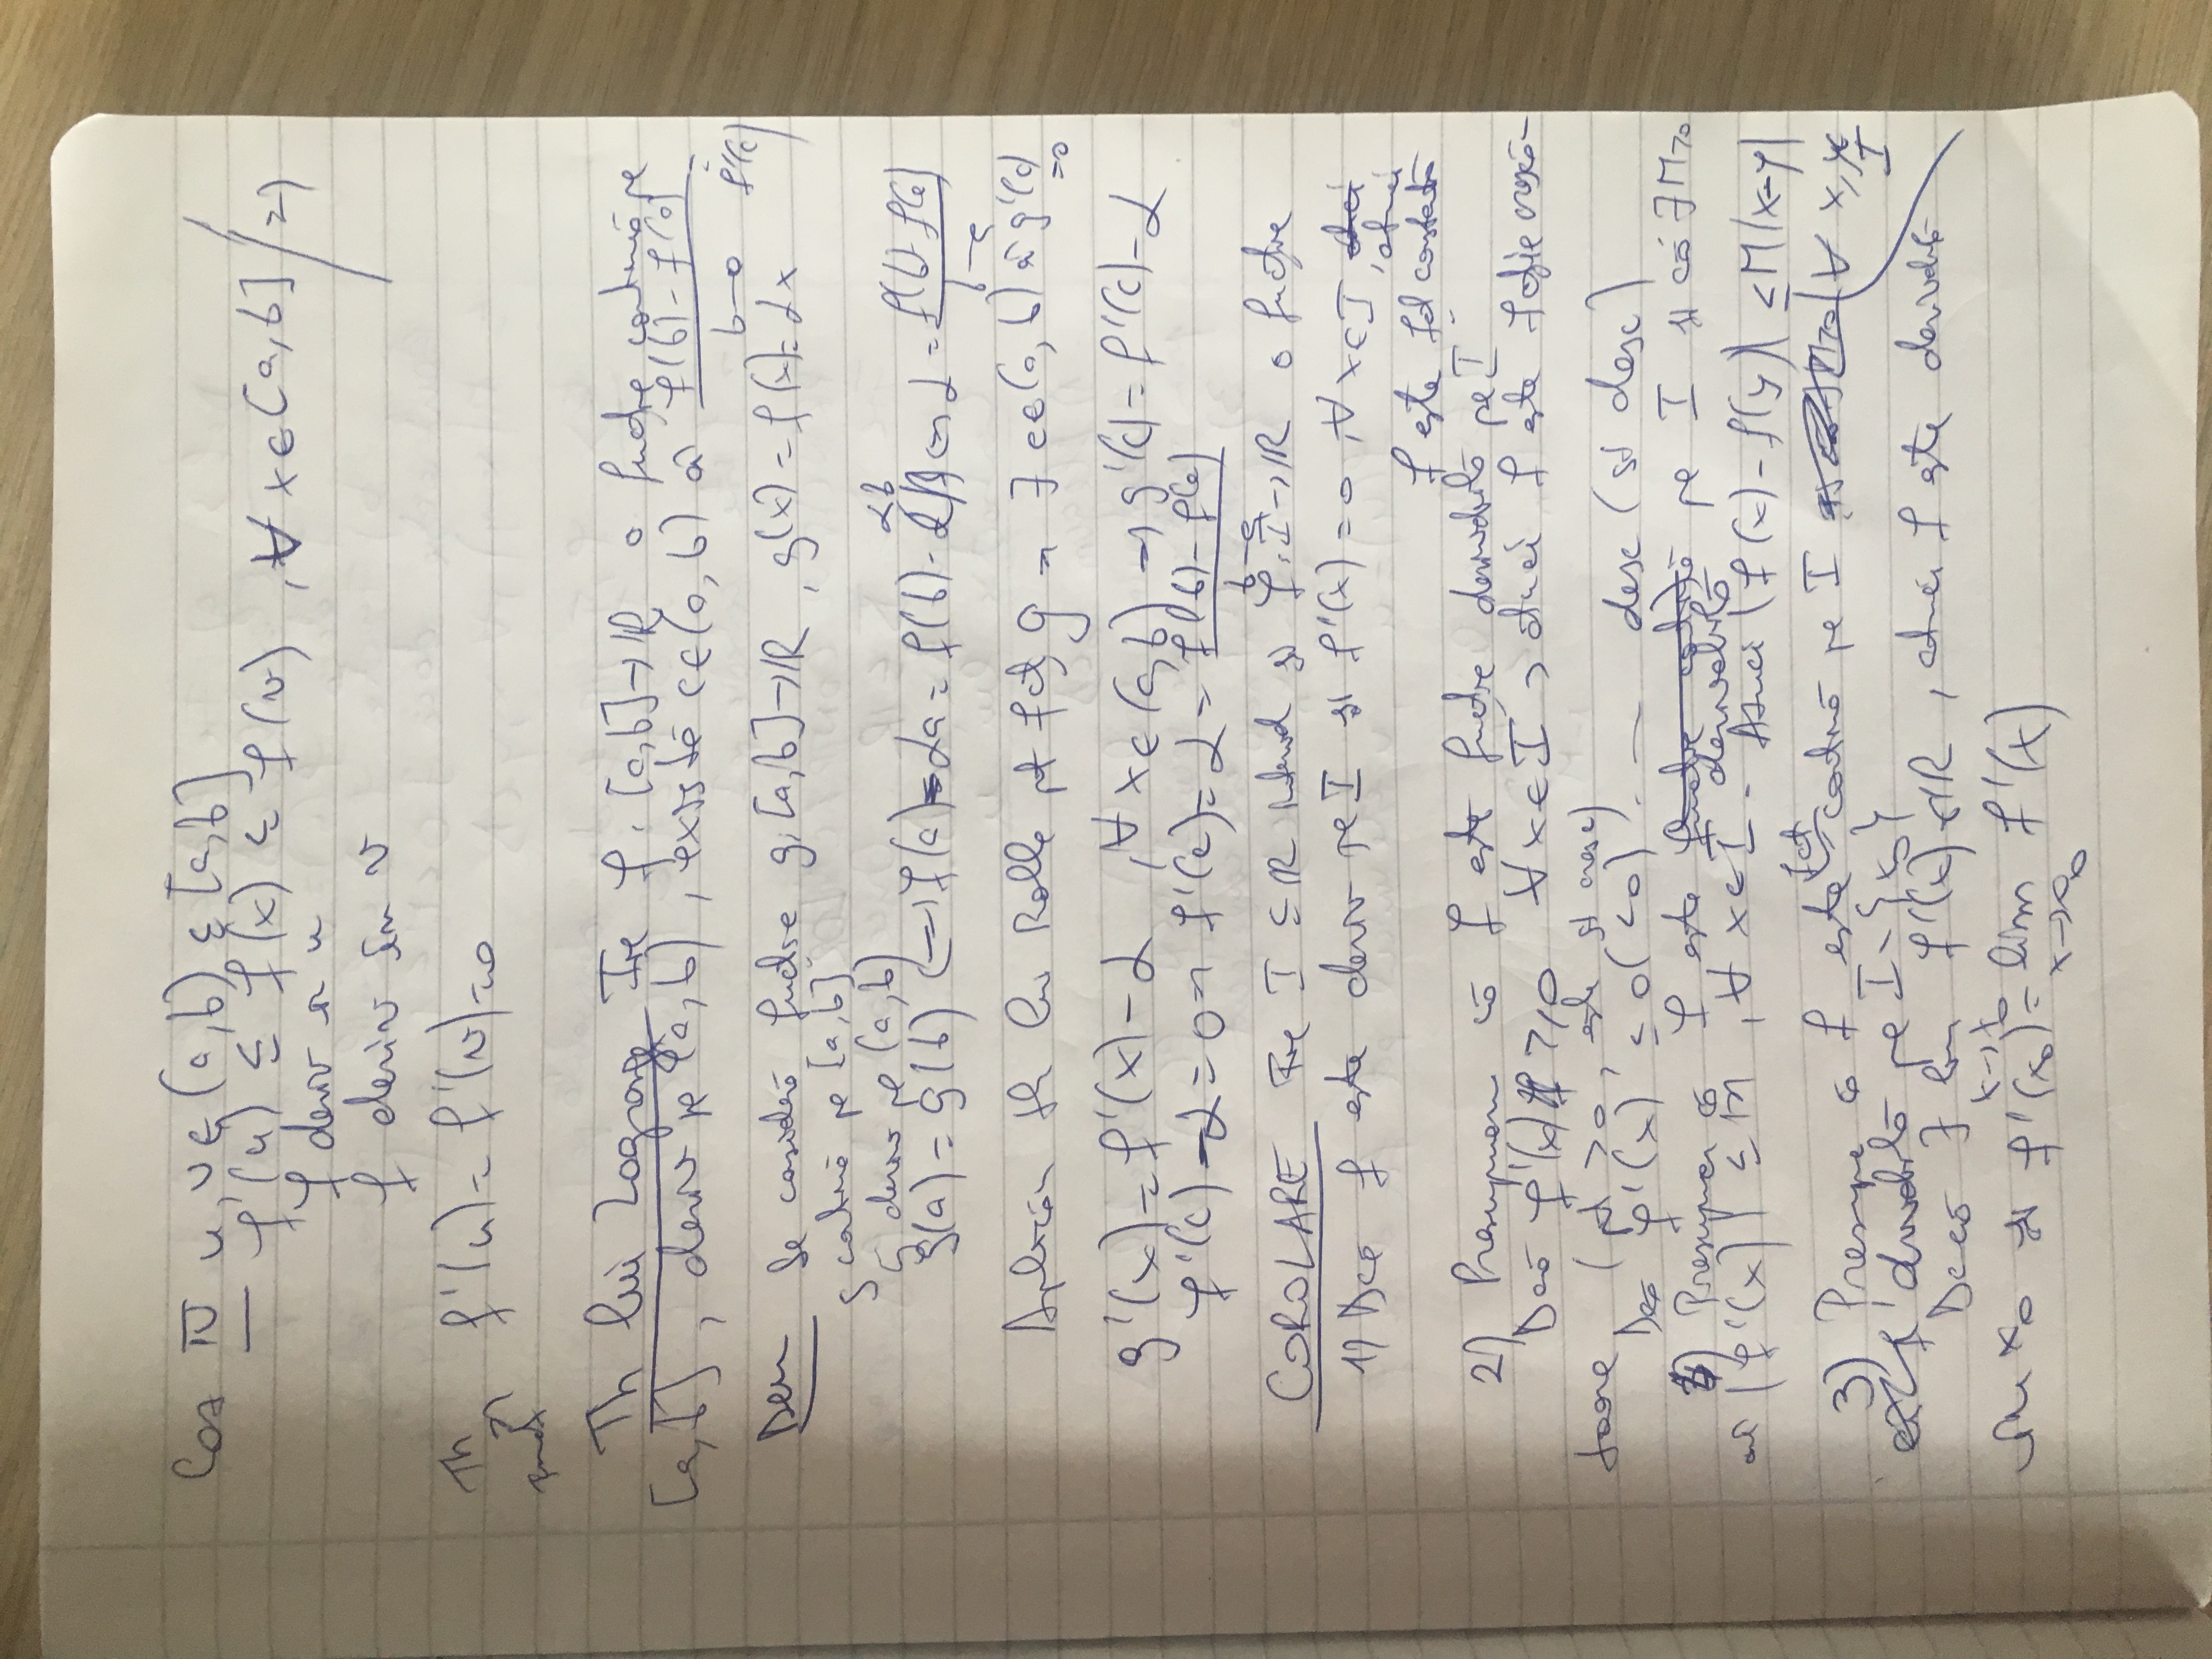 Caz IV u, v ∈ (a, b) ⊆ [a, b]
f(u) ≤ f(x) ≤ f(v) , ∀ x ∈ [a, b] / =>
f deriv în u
f deriv în v
Th => f'(u) = f'(v) = 0
Fermat
Th lui Lagrange Fie f : [a, b] → ℝ o funcție continuă pe
[a, b] , deriv pe (a, b) , există c ∈ (a, b) aî f(b) - f(a) / b - a = f'(c)
Dem Se consideră funcție g : [a, b] → ℝ , g(x) = f(x) - αx
g continuă pe [a, b]
g deriv pe (a, b)
g(a) = g(b) <=> f(a) - αa = f(b) - αb <=> α = f(b) - f(a) / b - a
Aplicăm th lui Rolle pt fcț g => ∃ c ∈ (a, b) aî g'(c) = 0
g'(x) = f'(x) - α , ∀ x ∈ (a, b) => g'(c) = f'(c) - α
f'(c) - α = 0 => f'(c) = α = f(b) - f(a) / b - a
COROLARE Fie I ⊆ ℝ interval și f : I → ℝ o funcție
1) Dacă f este deriv pe I și f'(x) = 0 , ∀ x ∈ I , atunci
f este fct constantă
2) Presupunem că f este funcție derivabilă pe I
Dacă f'(x) ≥ 0 ∀ x ∈ I , atunci f este fcție crescă-
toare (pt > 0 , este st cresc)
Dacă f'(x) ≤ 0 (< 0) . — desc (st desc)
4) Presupunem că f este derivabilă pe I și că ∃ M > 0
aî |f'(x)| ≤ M , ∀ x ∈ I . Atunci |f(x) - f(y)| ≤ M |x - y|
∀ x, y ∈ I
3) Presupun că f este fct continuă pe I
derivabilă pe I \ {x₀}
Dacă ∃ lim x→x₀ f'(x) ∈ ℝ , atunci f este derivabilă
în x₀ și f'(x₀) = lim x→x₀ f'(x)